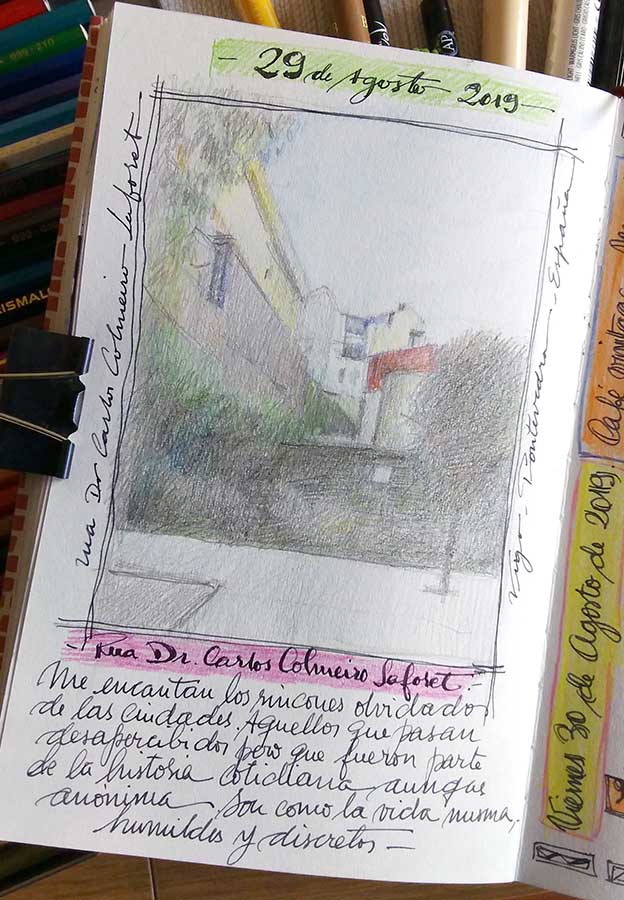 - 29 de Agosto 2019 -
Rua Dr Carlos Colmeiro Laforet
Vigo - Pontevedra - España
Rua Dr. Carlos Colmeiro Laforet.-
Me encantan los rincones olvidados
de las ciudades. Aquellos que pasan
desapercibidos pero que fueron parte
de la historia cotidiana aunque
anónima. Son como la vida misma,
humildes y discretos -
Viernes 30 de Agosto de 2019.
Café